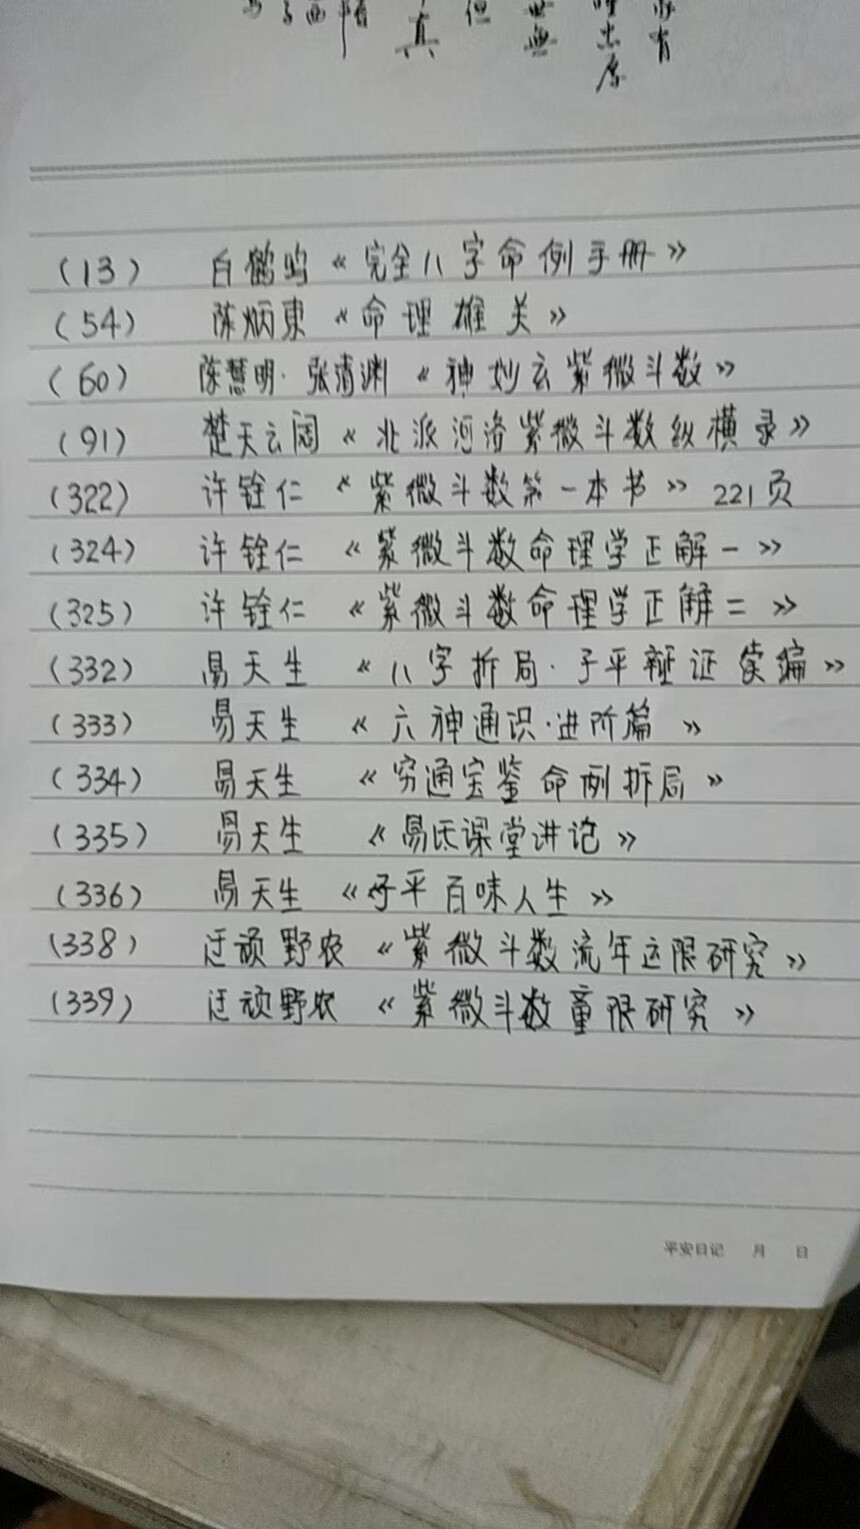 真
但
世無
有
(13) 白鹤鸣《完全八字命例手册》
(54) 陈炳東《命理雄关》
(60) 陈慧明·张清渊《神妙玄紫微斗数》
(91) 楚天云阔《北派河洛紫微斗数纵横录》
(322) 许铨仁《紫微斗数第一本书》221页
(324) 许铨仁《紫微斗数命理学正解一》
(325) 许铨仁《紫微斗数命理学正解二》
(332) 易天生《八字拆局·子平辩证续编》
(333) 易天生《六神通识·进阶篇》
(334) 易天生《穷通宝鉴命例拆局》
(335) 易天生《易氏课堂讲记》
(336) 易天生《子平百味人生》
(338) 迂顽野农《紫微斗数流年运限研究》
(339) 迂顽野农《紫微斗数童限研究》
平安日记 月 日